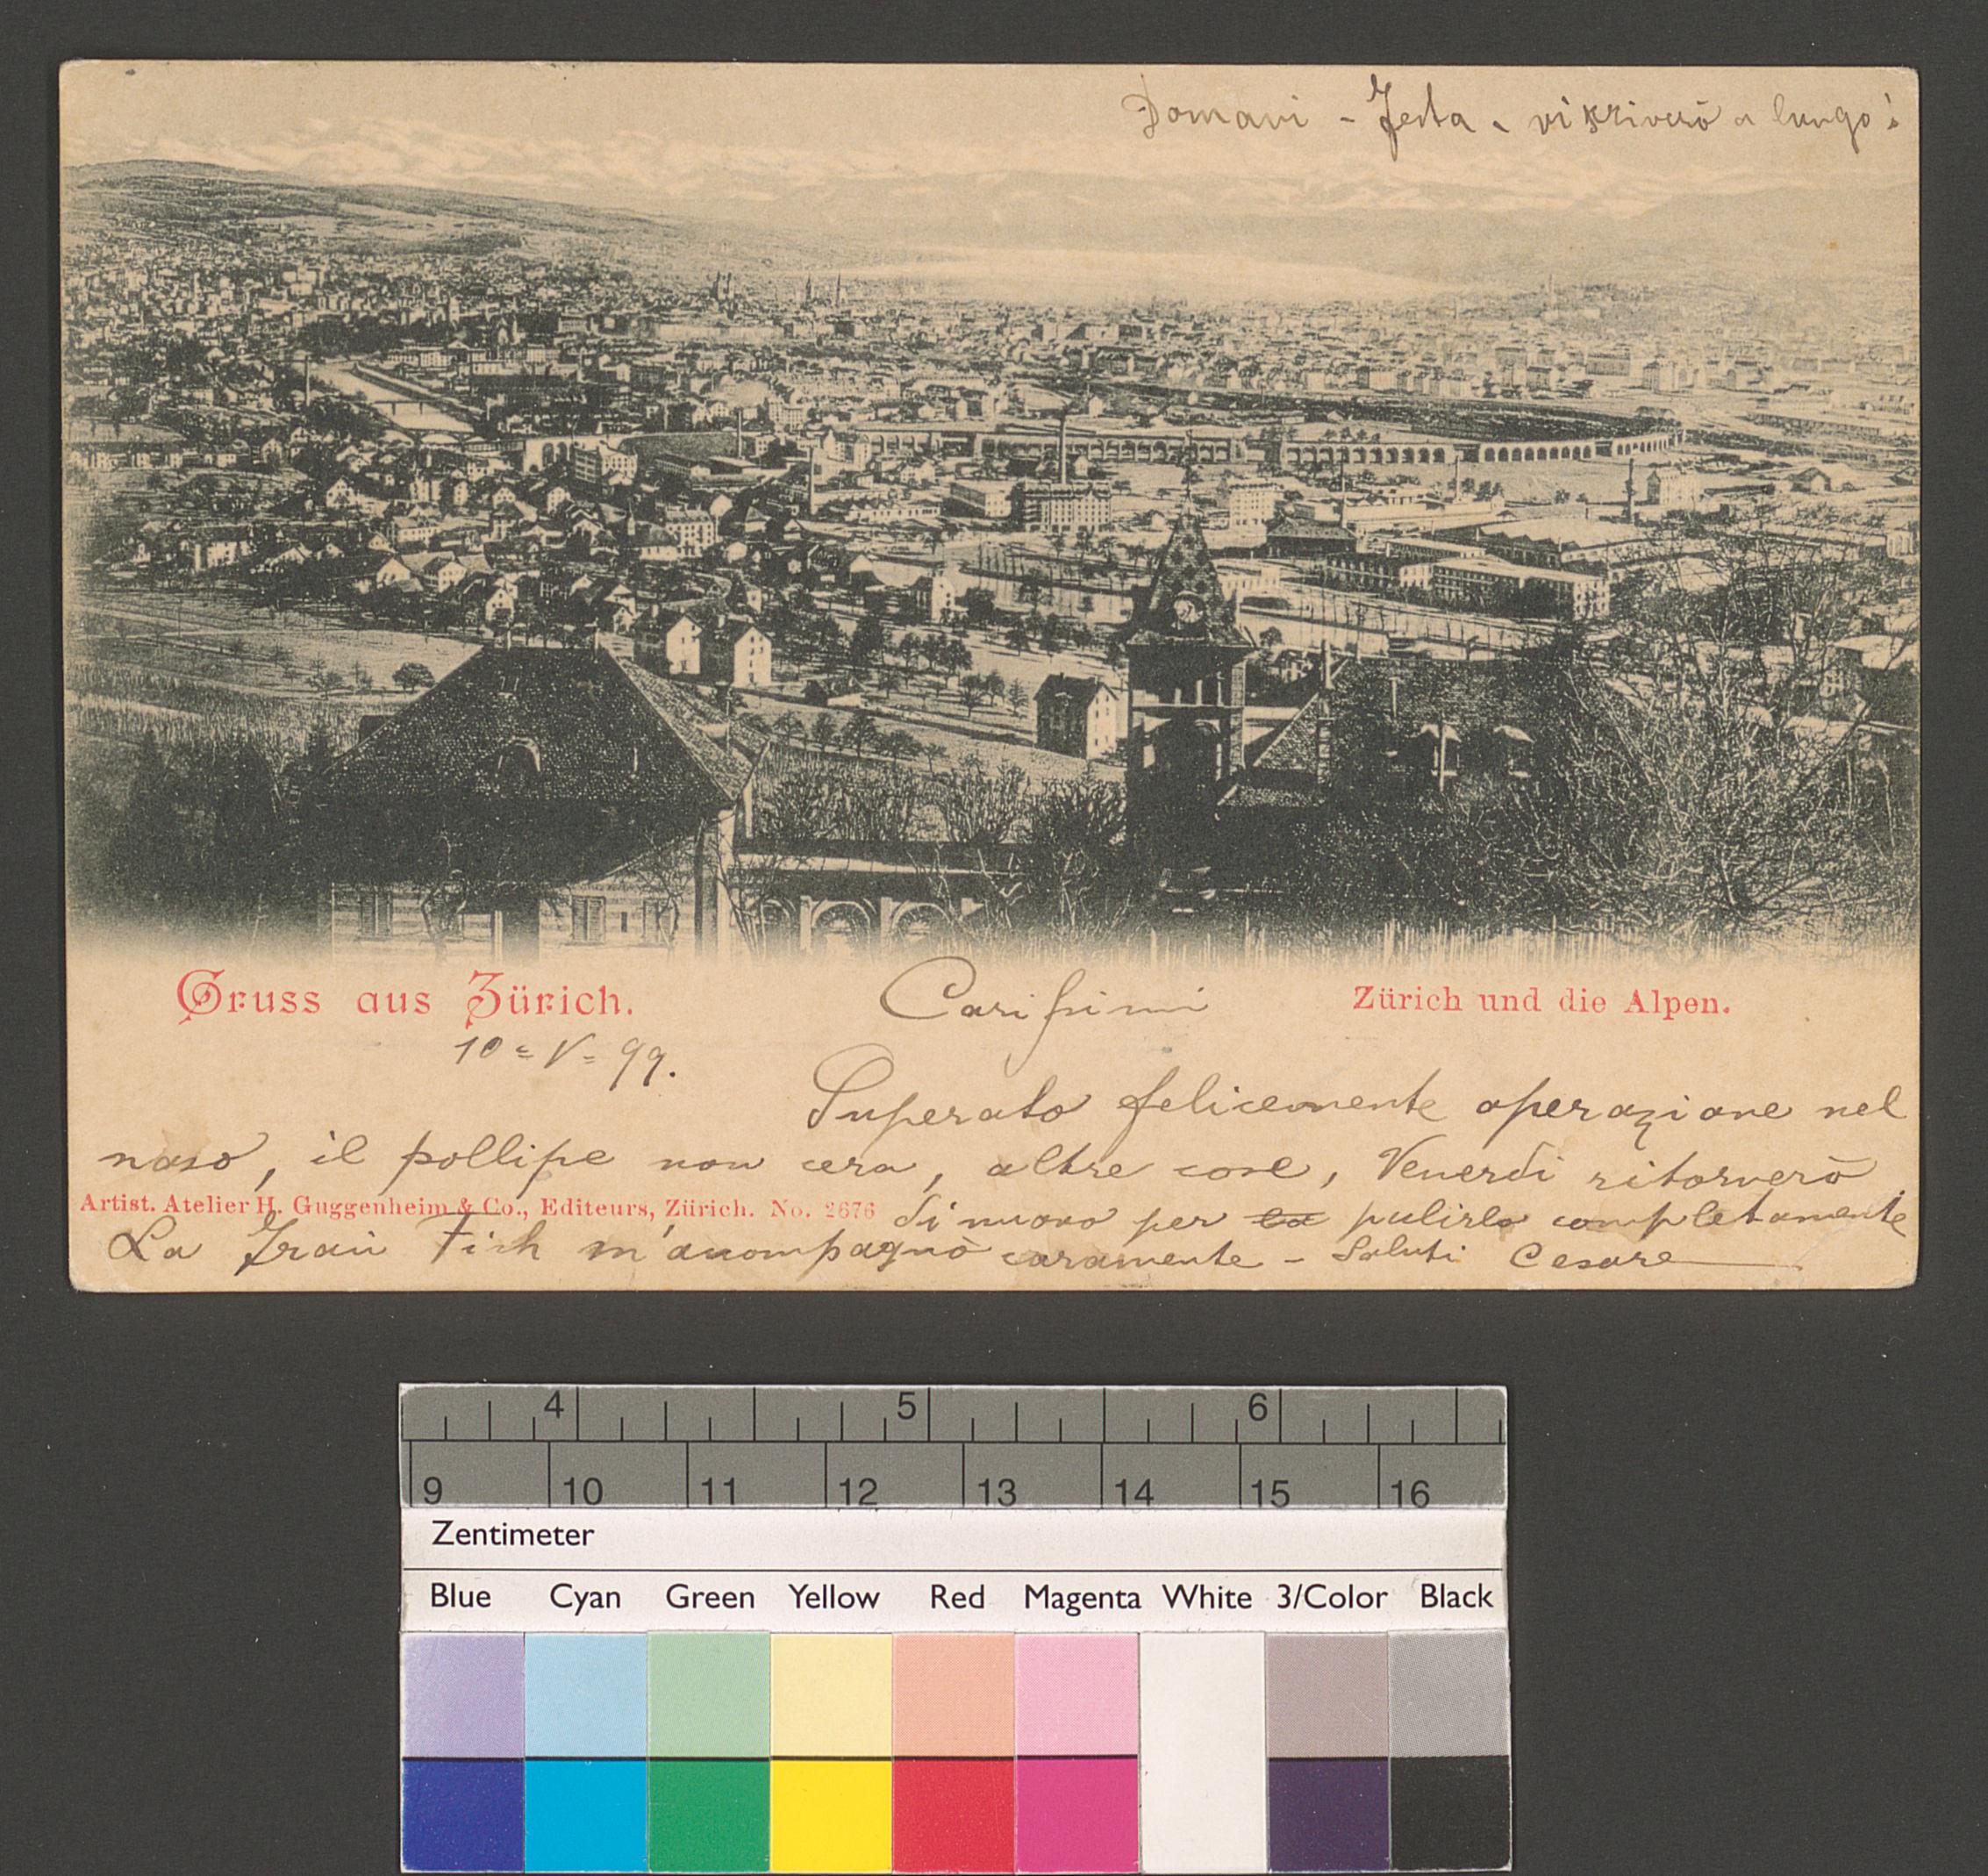 Domani - Festa - vi skriverò a lungo!
Gruss aus Zürich.
Carissimi
Zürich und die Alpen.
10 = V = 99.
Superato felicemente operazione nel
naso, il pollipe non cera, altre cose, Venerdi ritornerò
Artist. Atelier H. Guggenheim & Co., Editeurs, Zürich. No. 2676
di nuovo per la pulirlo completamente
La Frau Fish m'accompagnò caramente - Saluti Cesare
4 5 6
9 10 11 12 13 14 15 16
Zentimeter
Blue Cyan Green Yellow Red Magenta White 3/Color Black